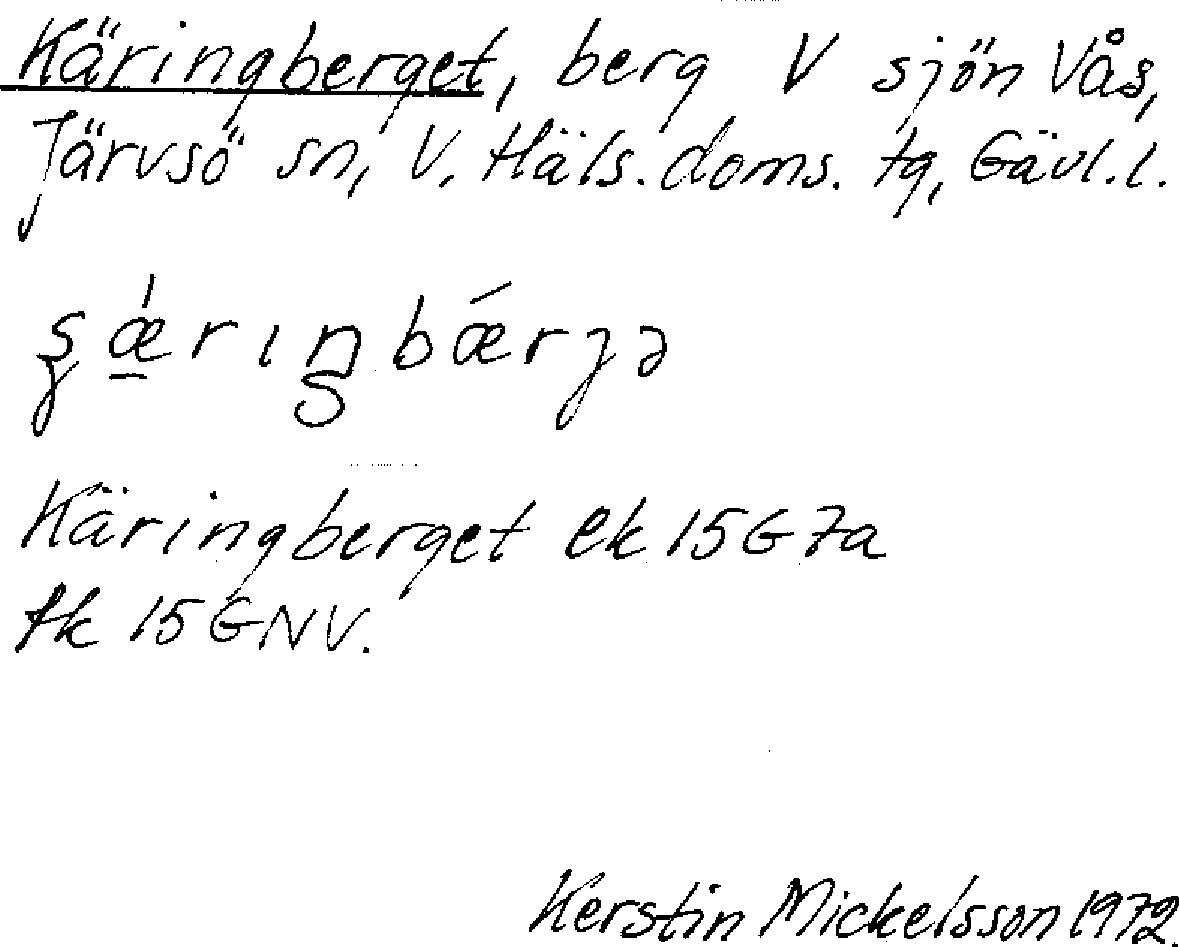 Käringberget, berg V sjön Vås,
Järvsö sn, V. Häls. doms. tg, Gävl.l.
Käringberget ek 15G7a
tk 15GNV.
Kerstin Mickelsson 1972.